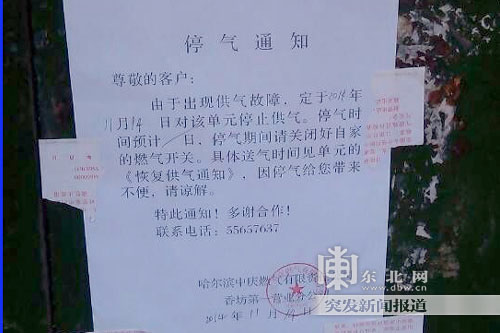 停气通知
尊敬的客户:
由于出现供气故障，定于2014年
11月14日对该单元停止供气。停气时
间预计1日，停气期间请关闭好自家
的燃气开关。具体送气时间见单元的
《恢复供气通知》，因停气给您带来
不便，请谅解。
特此通知！多谢合作！
联系电话：55657637
哈尔滨中庆燃气有限责
香坊第一营业分公
2014年11月14日
東北网
www.dbw.cn
突发新闻报道